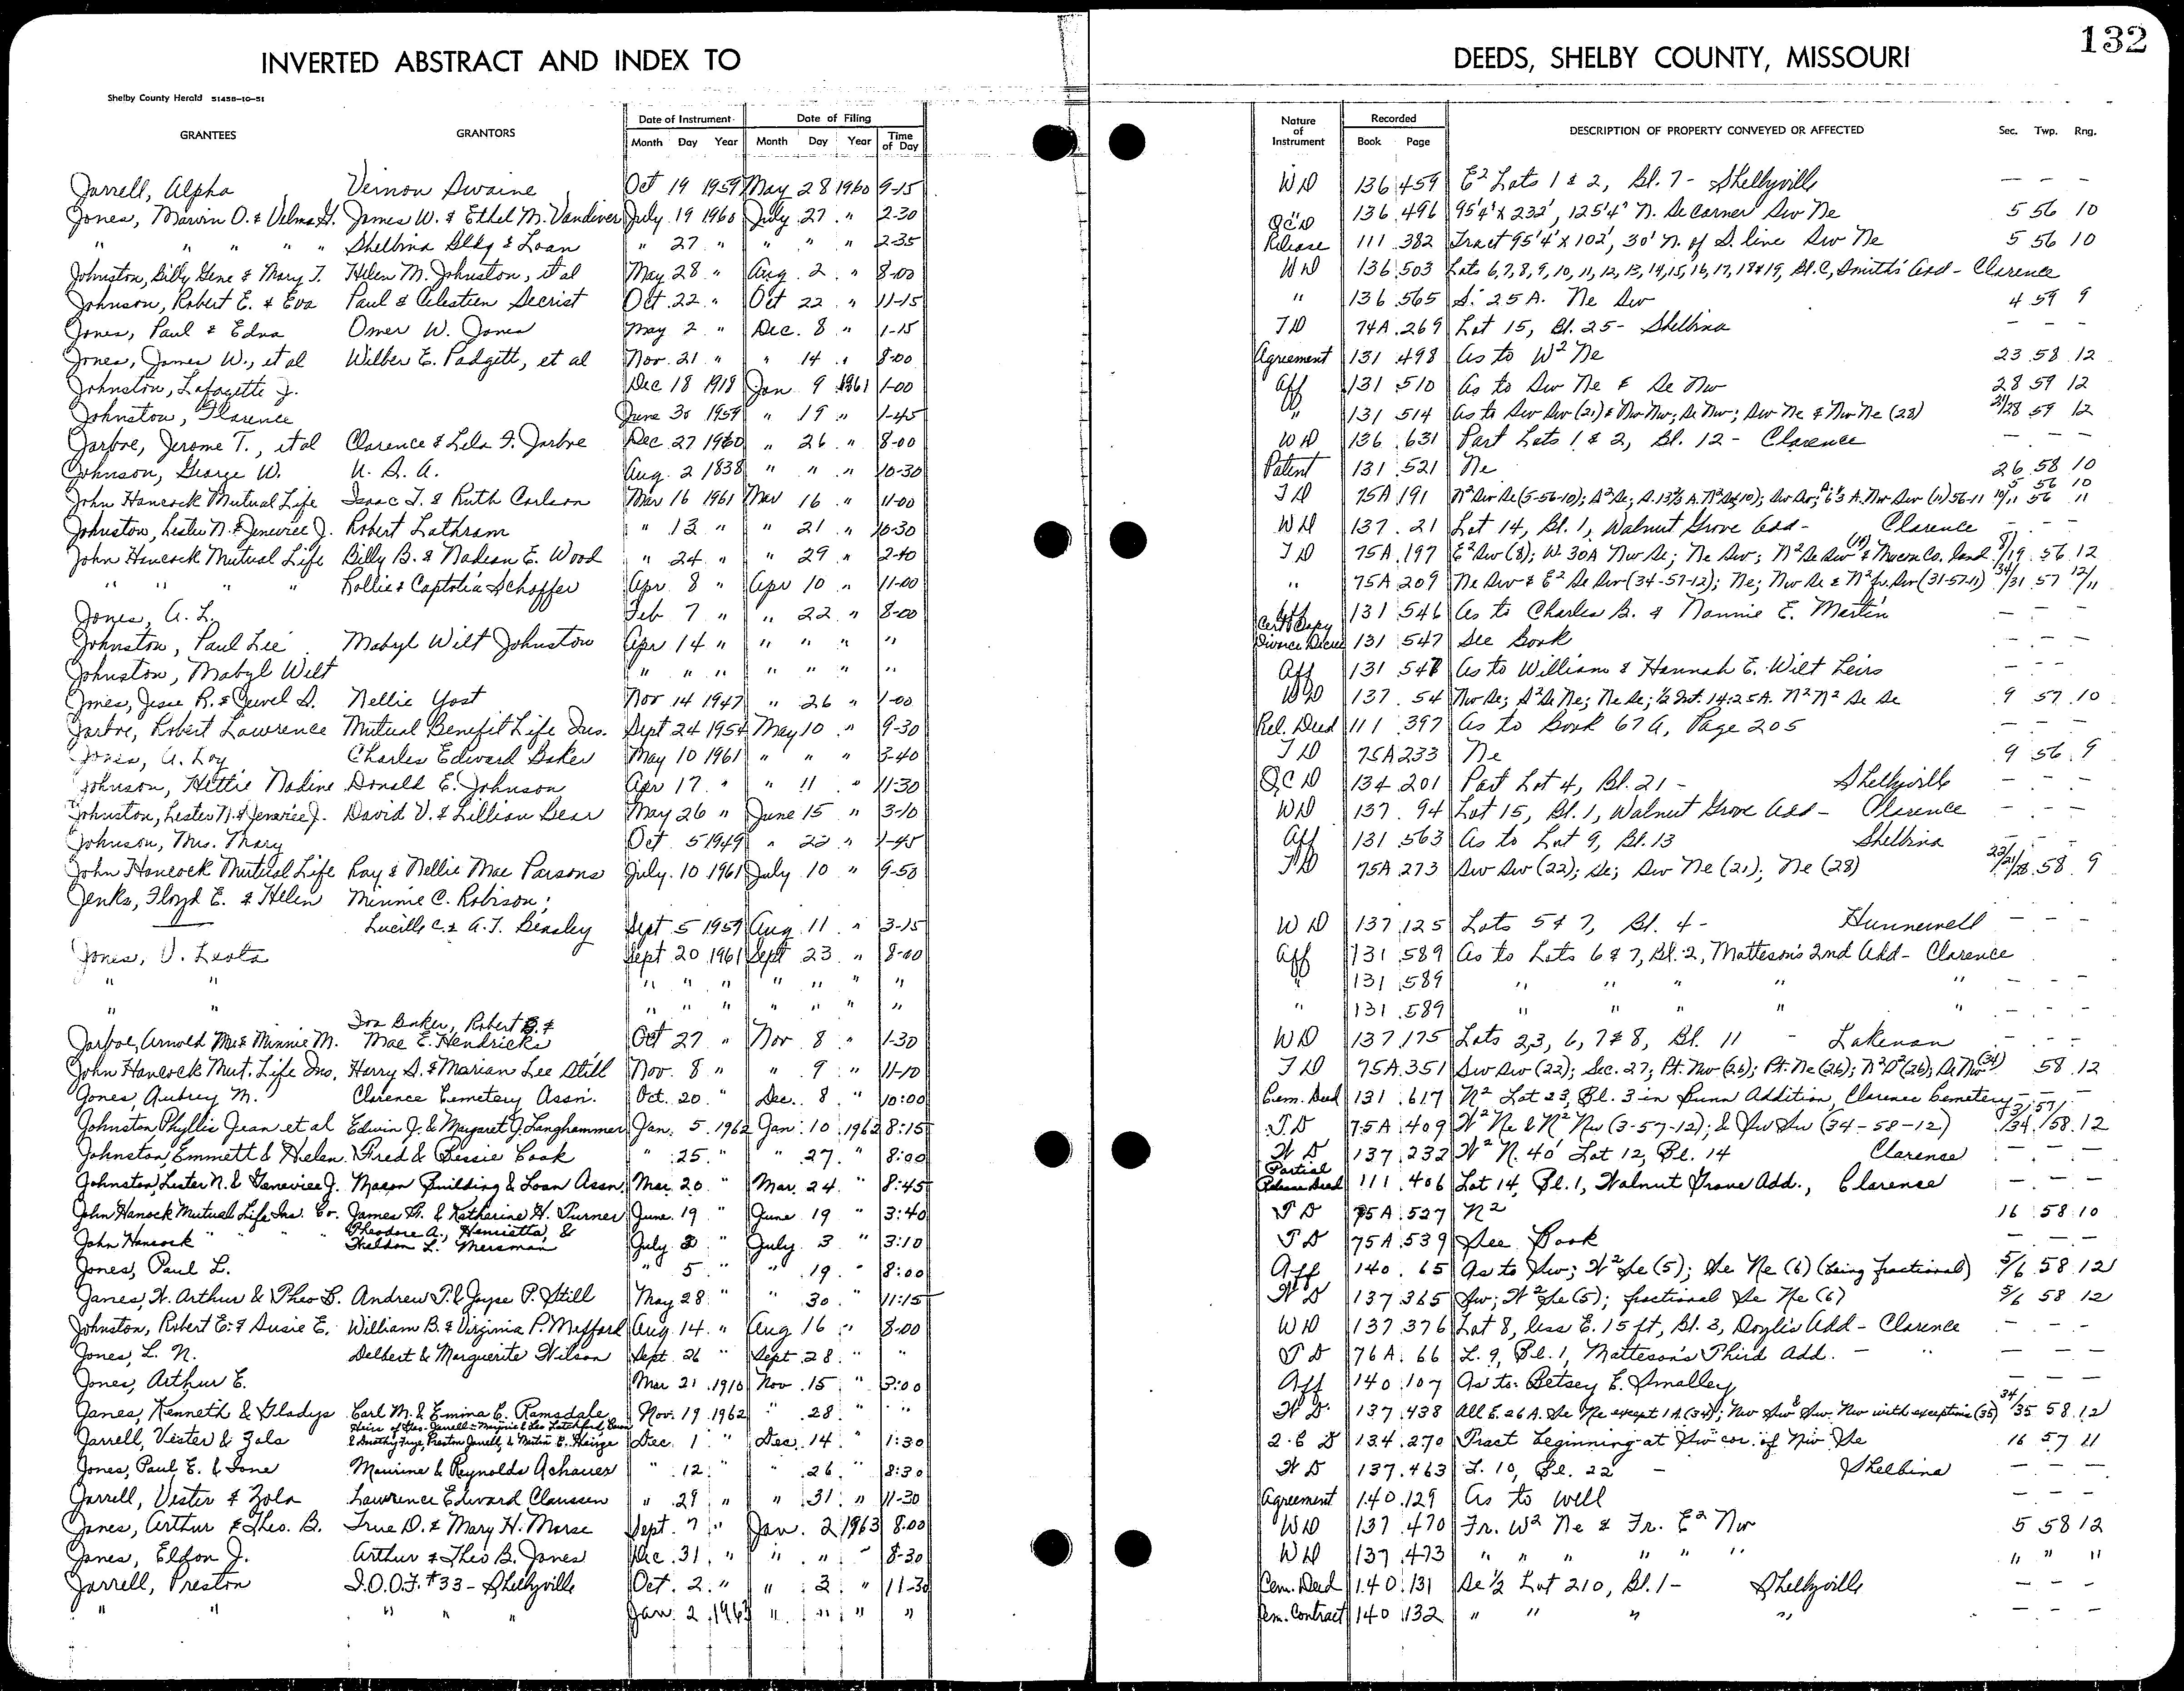 132
INVERTED ABSTRACT AND INDEX TO DEEDS, SHELBY COUNTY, MISSOURI
Shelby County Herald 51458-10-51
GRANTEES GRANTORS Date of Instrument Date of Filing Nature of Instrument Recorded DESCRIPTION OF PROPERTY CONVEYED OR AFFECTED Sec. Twp. Rng.
Month Day Year Month Day Year Time of Day Book Page
Jarrell, Alpha Vernon Swaine Oct 19 1959 May 28 1960 9-15 WD 136 459 E² Lots 1 & 2, Bl. 7 - Shelbyville — — —
Jones, Marvin O. & Velma H. James W. & Ethel M. Vandiver July 19 1960 July 27 " 2-30 QCD 136 496 95'4" x 232', 125'4" N. Se Corner Sw Ne 5 56 10
" " " " " Shelbina Bldg & Loan " 27 " " " " 2-35 Release 111 382 Tract 95'4" x 102', 30' N. of S. line Sw Ne 5 56 10
Johnston, Billy Gene & Mary J. Helen M. Johnston, et al May 28 " Aug. 2 " 8-00 WD 136 503 Lots 6, 7, 8, 9, 10, 11, 12, 13, 14, 15, 16, 17, 18 & 19, Bl. C, Smith's Add - Clarence
Johnson, Robert E. & Eva Paul & Celestien Secrist Oct. 22 " Oct 22 " 11-15 " 136 565 S. 25 A. Ne Sw 4 59 9
Jones, Paul & Edna Omer W. Jones May 2 " Dec. 8 " 1-15 TD 74A 269 Lot 15, Bl. 25 - Shelbina — — —
Jones, James W., et al Wilber E. Padgett, et al Nov. 21 " " 14 " 8-00 Agreement 131 498 As to W² Ne 23 58 12
Johnston, Lafayette J. Dec 18 1918 Jan 9 1961 1-00 Aff 131 510 As to Sw Ne & Se Nw 28 59 12
Johnston, Clarence June 30 1959 " 19 " 1-45 " 131 514 As to Sw Sw (21) & Nw Nw; Se Nw; Sw Ne & Nw Ne (28) 21/28 59 12
Jarboe, Jerome T., et al Clarence & Lela F. Jarboe Dec 27 1960 " 26 " 8-00 WD 136 631 Part Lots 1 & 2, Bl. 12 - Clarence — — —
Johnson, George W. U. S. A. Aug. 2 1838 " " " 10-30 Patent 131 521 Ne 26 58 10
John Hancock Mutual Life Isaac T. & Ruth Carlson Mar 16 1961 Mar 16 " 11-00 TD 75A 191 N² Sw Se (5-56-10); S² Se; Sw Sw; Nw Sw (11) 56-11 5 56 10 10/11 56 11
Johnston, Lester N. & Jeneviee J. Robert Lathram " 13 " " 21 " 10-30 WD 137 21 Lot 14, Bl. 1, Walnut Grove Add - Clarence — — —
John Hancock Mutual Life Billy B. & Nadean E. Wood " 24 " " 29 " 2-40 TD 75A 197 E² Sw (8); W. 30A Nw Se; Ne Sw; N² Se Sw (19) & Macon Co. land 8/19 56 12
" " " " Rollie & Captolia Schaffer Apr 8 " Apr 10 " 11-00 " 75A 209 Ne Sw & E² Se Sw (34-57-12); Ne; Nw Se & N² fr. Sw (31-57-11) 34/31 57 12/11
Jones, A. L. Feb 7 " " 22 " 8-00 Aff 131 546 As to Charles B. & Nannie E. Martin — — —
Johnston, Paul Lee Mabyl Wilt Johnston Apr 14 " " " " " Cert Copy Divorce Decree 131 547 See Book — — —
Johnston, Mabyl Wilt " " " " " " " Aff 131 548 As to William & Hannah E. Wilt Heirs — — —
Jones, Jesse R. & Jewel S. Nellie Yost Nov 14 1947 " 26 " 1-00 WD 137 54 Nw Se; S² Se Ne; Ne Se; ½ Int. 14.25A. N² N² Se Se 9 57 10
Jarboe, Robert Lawrence Mutual Benefit Life Ins. Sept 24 1954 May 10 " 9-30 Rel. Deed 111 397 As to Book 67A, Page 205 — — —
Jones, A. Loy Charles Edward Baker May 10 1961 " " " 3-40 TD 75A 233 Ne 9 56 9
Johnson, Hettie Nadine Donald E. Johnson Apr 17 " " 11 " 11-30 QCD 134 201 Part Lot 4, Bl. 21 - Shelbyville — — —
Johnston, Lester N. & Jeneviee J. David V. & Lillian Bear May 26 " June 15 " 3-10 WD 137 94 Lot 15, Bl. 1, Walnut Grove Add - Clarence — — —
Johnson, Mrs. Mary Oct 5 1949 " 22 " 1-45 Aff 131 563 As to Lot 9, Bl. 13 Shelbina — — —
John Hancock Mutual Life Ray & Nellie Mae Parsons July 10 1961 July 10 " 9-50 TD 75A 273 Sw Sw (22); Se; Sw Ne (21); Ne (28) 22/21/28 58 9
Jenks, Floyd E. & Helen Minnie C. Robison;
Lucille C. & A. T. Beasley Sept 5 1959 Aug 11 " 3-15 WD 137 125 Lots 5 & 7, Bl. 4 - Hunnewell — — —
Jones, V. Leota Sept 20 1961 Sept 23 " 8-00 Aff 131 589 As to Lots 6 & 7, Bl. 2, Matteson's 2nd Add - Clarence
" " " " " " " " " " 131 589 " " " " " — — —
" " " " " " " " " " 131 589 " " " " " — — —
Jarboe, Arnold Mc & Minnie M. Iva Baker, Robert B. & Mae E. Hendricks Oct 27 " Nov 8 " 1-30 WD 137 175 Lots 2,3, 6, 7 & 8, Bl. 11 - Lakenan — — —
John Hancock Mut. Life Ins. Harry S. & Marian Lee Still Nov. 8 " " 9 " 11-10 TD 75A 351 Sw Sw (22); Sec. 27; Pt. Nw (26); Pt. Ne (26); N² S² (26); Se Nw (34) 58 12
Jones, Aubrey M. Clarence Cemetery Assn. Oct. 20 " Dec. 8 " 10:00 Cem. Deed 131 617 N² Lot 23, Bl. 3 in Bunn Addition, Clarence Cemetery — —
Johnston Phyllis Jean et al Edwin J. & Margaret J. Langhammer Jan. 5 1962 Jan. 10 1962 8:15 T.D 75A 409 W² Ne & N² Nw (3-57-12); & Sw Sw (34-58-12) 3/34 57/58 12
Johnston, Emmett & Helen Fred & Bessie Cook " 25 " " 27 " 8:00 WD 137 232 W² N. 40' Lot 12, Bl. 14 Clarence — — —
Johnston, Lester N. & Geneviee J. Macon Building & Loan Assn. Mar. 20 " Mar. 24 " 8:45 Partial Release Deed 111 406 Lot 14, Bl. 1, Walnut Grove Add., Clarence — — —
John Hanock Mutual Life Ins. Co. James H. & Katherine H. Turner June 19 " June 19 " 3:40 TD 75A 527 N² 16 58 10
John Hancock " " " Theodore A., Henrietta, & Sheldon L. Mersman July 3 " July 3 " 3:10 TD 75A 539 See Book — — —
Jones, Paul L. " 5 " " 19 " 8:00 Aff 140 65 As to Sw; W² Se (5); Se Ne (6) (being fractional) 5/6 58 12
Janes, W. Arthur & Theo B. Andrew P. & Joyce P. Still May 28 " " 30 " 11:15 WD 137 365 Sw; W² Se (5); fractional Se Ne (6) 5/6 58 12
Johnston, Robert E. & Susie E. William B. & Virginia P. Mefford Aug. 14 " Aug 16 " 8:00 WD 137 376 Lot 8, less E. 15 ft, Bl. 3, Doyle's Add - Clarence — — —
Jones, L. N. Delbert & Marguerite Wilson Sept. 26 " Sept. 28 " " TD 76A 66 L. 9, Bl. 1, Matteson's Third Add. — " — — —
Jones, Arthur E. Mar 21 1910 Nov. 15 " 3:00 Aff 140 107 As to Betsey E. Smalley — — —
Janes, Kenneth & Gladys Carl M. & Emina C. Ramsdale Nov. 19 1962 " 28 " " WD 137 438 All E. 26 A. Se Ne except 1 A (34); Nw Sw & Sw Nw with exceptions (35) 34/35 58 12
Jarrell, Vester & Zola Dec. 1 " Dec. 14 " 1:30 Q C D 134 270 Tract beginning at Sw cor. of Nw Se 16 57 11
Jones, Paul E. & Ione Maurine & Reynolds Achauer " 12 " " 26 " 8:30 WD 137 463 L. 10, Bl. 22 - Shelbina — — —
Jarrell, Vester & Zola Lawrence Edward Claussen " 29 " " 31 " 11-30 Agreement 140 129 As to well — — —
Janes, Arthur & Theo. B. True D. & Mary H. Morse Sept. 7 " Jan. 2 1963 8:00 WD 137 470 Fr. W² Ne & Fr. E² Nw 5 58 12
Janes, Eldon J. Arthur & Theo B. Janes Dec. 31 " " " " 8-30 WD 137 473 " " " " " " " " "
Jarrell, Preston I.O.O.F. #33 - Shelbyville Oct. 2 " " 2 " 11-30 Cem. Deed 140 131 Se ½ Lot 210, Bl. 1 - Shelbyville — — —
" " " " " Jan. 2 1963 " " " " Cem. Contract 140 132 " " " " — — —